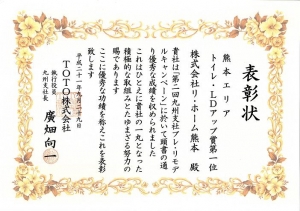 表彰状
熊本エリア
トイレ・LDアップ賞第一位
株式会社リ・ホーム熊本 殿
貴社は「第二回九州支社プレ・リモデ
ルキャンペーン」に於いて頭書の通
り優秀な成績を収められました
これはひとえに貴社の一丸となった
積極的な取組みとたゆまざる努力の
賜であります
ここに優秀な功績を称えこれを表彰
致します
平成二十一年九月二十九日
TOTO株式会社
執行役員
九州支社長
廣畑 向一